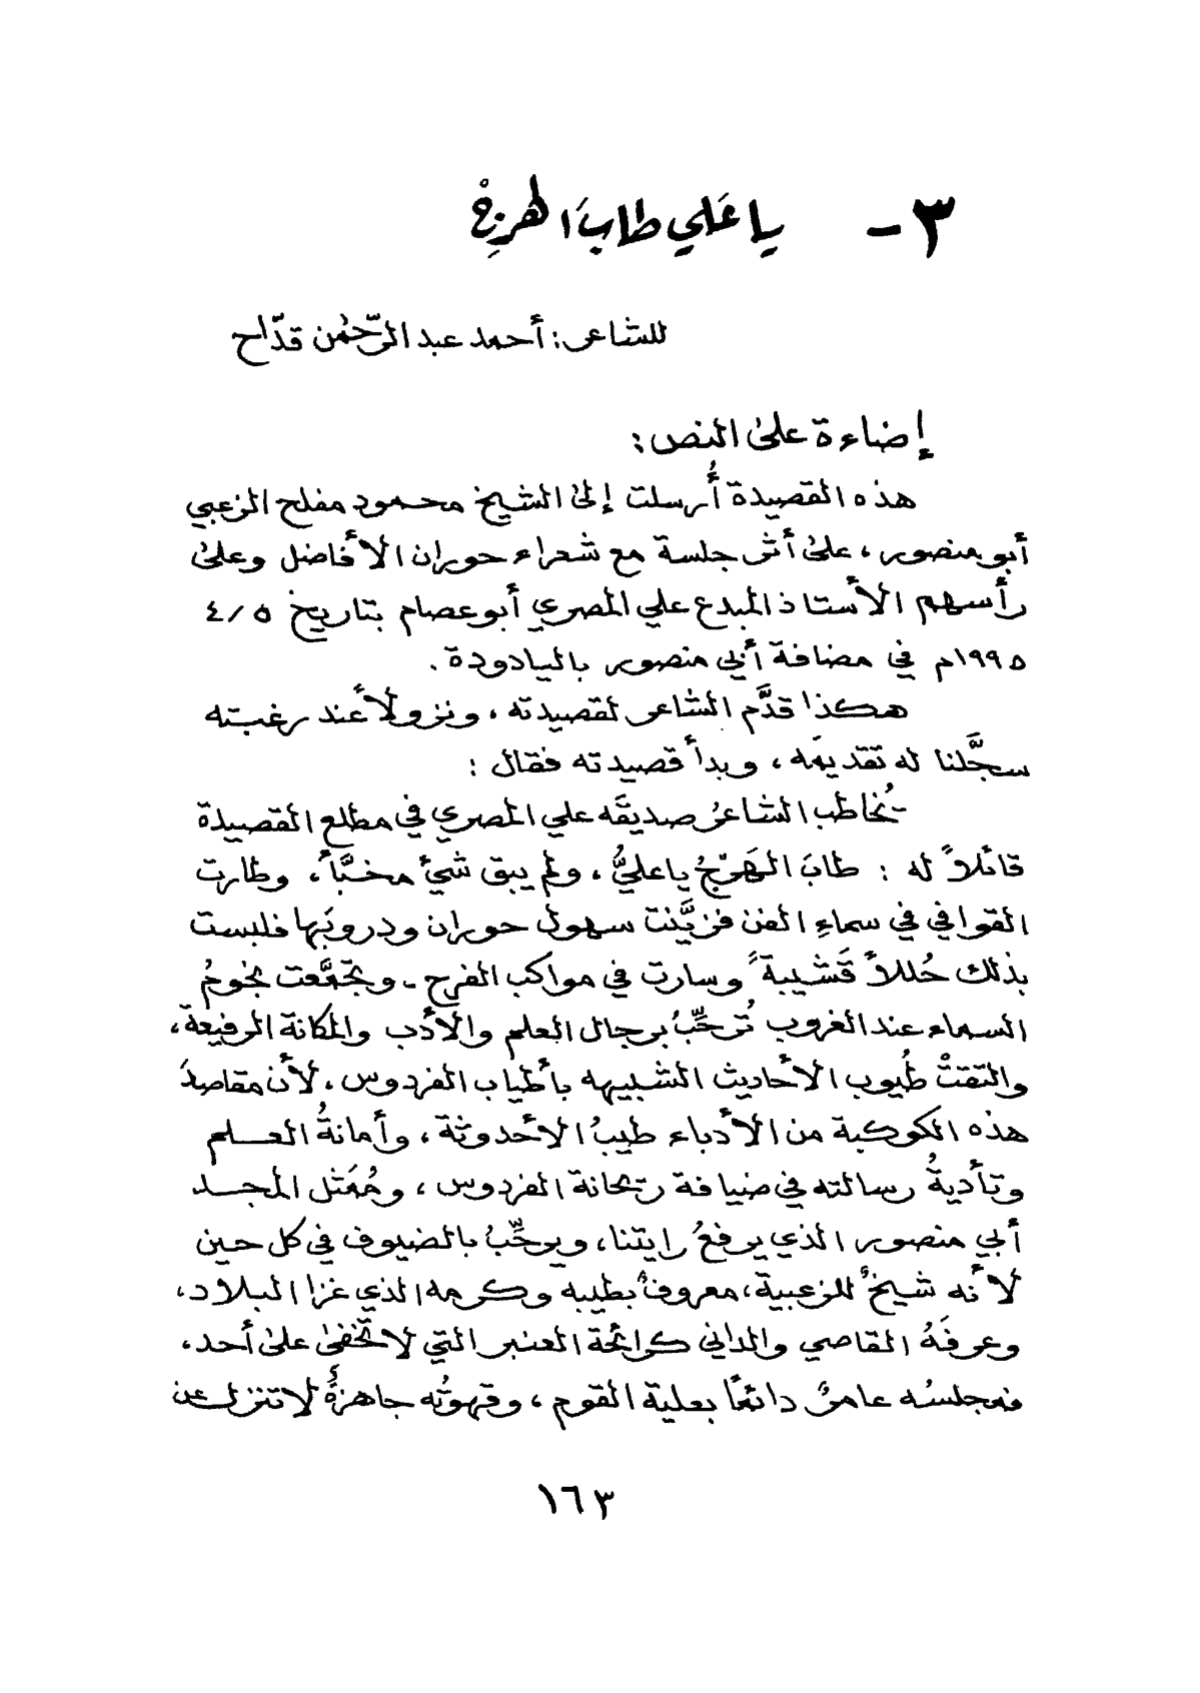 ٣ - يا عَلي طابَ الهرِجْ
للشاعر: أحمد عبد الرّحمٰن قدّاح
إضاءة علىٰ النص:
هذه القصيدة أُرسلت إلىٰ الشيخ محمود مفلح الزعبي
أبو منصور، علىٰ أثر جلسة مع شعراء حوران الأفاضل وعلىٰ
رأسهم الأستاذ المبدع علي المصري أبو عصام بتاريخ ٤/٥
١٩٩٥م في مضافة أبي منصور باليادودة.
هكذا قدَّم الشاعر لقصيدته، ونزولاً عند رغبته
سجَّلنا له تقديمَه، وبدأ قصيدته فقال:
يُخاطب الشاعرُ صديقَه علي المصري في مطلع القصيدة
قائلاً له: طابَ الهَرْجُ يا عليُّ، ولم يبق شيءٌ مخبَّأً، وطارت
القوافي في سماءِ الفن فزيَّنت سهول حوران ودروبَها فلبست
بذلك حُللاً قَشيبةً وسارت في مواكب الفرح. وتجمَّعت نجومُ
السماء عند الغروب تُرحِّبُ برجال العلم والأدب والمكانة الرفيعة،
والتقتْ طُيوب الأحاديث الشبيهه بأطياب الفردوس، لأن مقاصدَ
هذه الكوكبة من الأدباء طيبُ الأحدوثة، وأمانةُ العلم
وتأديةُ رسالته في ضيافة ريحانة الفردوس، ومُمَثل المجد
أبي منصور الذي يرفعُ رايتنا، ويرحِّبُ بالضيوف في كل حين
لأنه شيخٌ للزعبية، معروفٌ بطيبه وكرمه الذي غزا البلاد،
وعرفَهُ القاصي والداني كرائحة العنبر التي لا تخفىٰ علىٰ أحد،
فمجلسُه عامرٌ دائمًا بعلية القوم، وقهوتُه جاهزةٌ لا تنزل عن
١٦٣